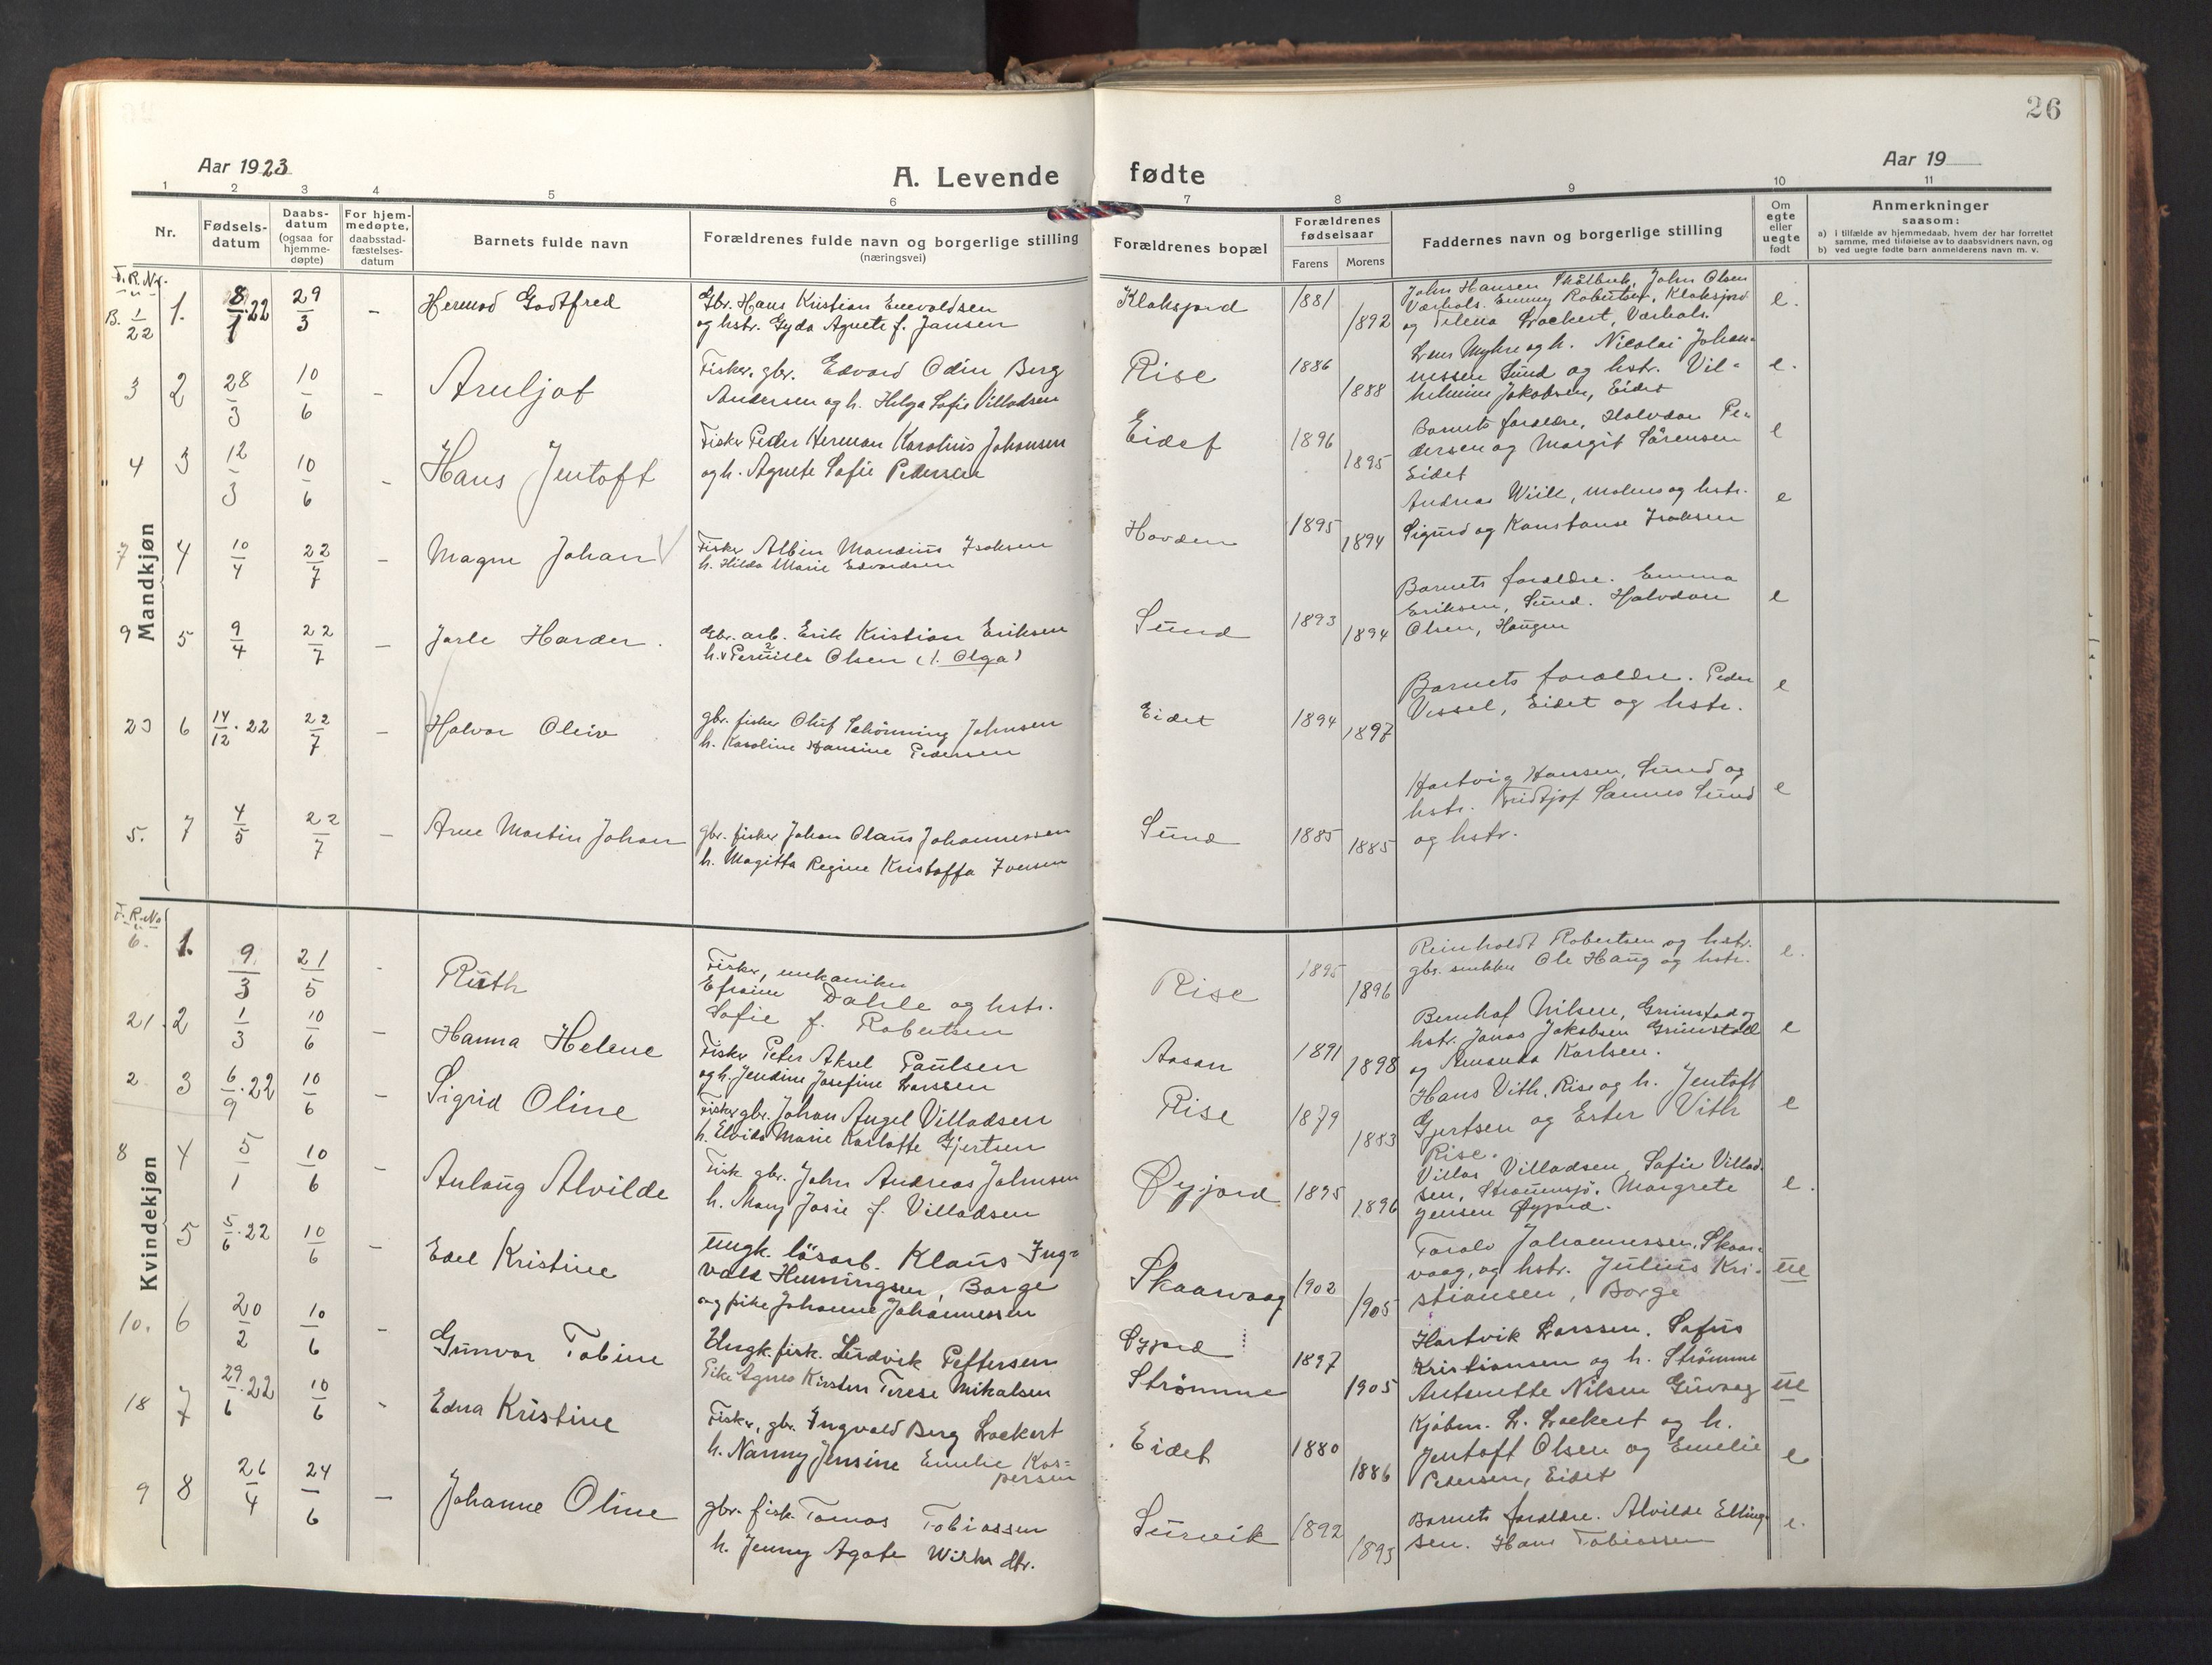 26
Aar 1923
A. Levende fødte
Aar 19
1 2 3 4 5 6 7 8 9 10 11
Nr.
Fødsels-
datum
Daabs-
datum
(ogsaa for
hjemme-
døpte)
For hjem-
medøpte,
daabsstad-
fæstelses-
datum
Barnets fulde navn
Forældrenes fulde navn og borgerlige stilling
(næringsvei)
Forældrenes bopæl
Forældrenes
fødselsaar
Farens Morens
Faddernes navn og borgerlige stilling
Om
egte
eller
uegte
født
Anmerkninger
saasom:
a) i tilfælde av hjemmedaab, hvem der har forrettet
samme, med tilføielse av to daabsvidners navn, og
b) ved uegte fødte barn anmelderens navn m. v.
Mandkjøn
F. R. Nr.
B. 1/22 1. 8/1.22 29/3 - Hermod Godtfred
Gbr. Hans Kristian Enevoldsen
og hstr. Gyda Agnete f. Jansen
Klaksjord 1881 1892
John Hansen John Olsen
Værhals. Emmy Robertsen, Klaksjord
og Lockert, Værhals.
e.
3 2 28/3 10/6 - Arnljot
Fisker, gbr. Edvard Odin Berg
Andersen og h. Helga Sofie Villadsen
Rise 1886 1888
Lars Myhre og h. Nicolai Johan-
nessen Sund og hstr. Vil-
helmine Jakobsen, Eidet
e.
4 3 12/3 10/6 - Hans Jentoft
Fisker Peder Herman Karolius Johansen
og h. Agnete Sofie Pedersen
Eidet 1896 1895
Barnets forældre, Halvdan Pe-
dersen og Margit Sørensen
Eidet
e
7 4 10/4 22/7 - Magne Johan
Fisker Albin Mandius Isaksen
h. Hilda Marie Edvardsen
Hovden 1895 1894
Andreas Wiik, Malnes og hstr.
Sigurd og Konstanse Isaksen
e
9 5 9/4 22/7 - Jarle Harder.
Gbr. arb. Erik Kristian Eriksen
h. v Pernille 2 Olsen (1. Olga)
Sund 1893 1894
Barnets forældre. Emma
Eriksen, Sund. Halvdan
Olsen, Haugen
e
23 6 14/12.22 22/7 - Halvor Oleiv
gbr. fisker Oluf Schønning Johnsen
h. Karoline Hansine Pedersen
Eidet 1894 1897
Barnets forældre. Peder
Vessel, Eidet og hstr.
e
5. 7 4/5 22/7 - Arne Martin Johan
gbr. fisker Johan Olaus Johannessen
h. Magitta Regine Kristoffa Iversen
Sund 1885 1885
Hartvig Hansen, Sund og
hstr. Fridtjof Sannes Sund
og hstr.
e
Kvindekjøn
F. R. No
6. 1. 9/3 21/5 - Ruth
Fisker, mekaniker
Efraim Dahle og hstr.
Sofie f. Robertsen
Rise 1895 1896
Reinholdt Robertsen og hstr.
gbr. snekker Ole Haug og hstr.
e.
21. 2 1/3 10/6 - Hanna Helene
Fisker Peter Aksel Paulsen
og h. Jendine Josefine Larssen
Aasan 1891 1898
Bernhof Nilsen, Grimstad og
hstr. Jonas Jakobsen Grimstad
og Amanda Karlsen.
e
2 3 6/9.22 10/6 - Sigrid Oline
Fisker gbr. Johan Angel Villadsen
h. Elvida Marie Karlotte Gjertsen
Rise 1879 1883
Hans Vith, Rise og h. Jentoft
Gjertsen og Ester Vith
Rise.
e
8 4 5/1 10/6 - Aulaug Alvilde
Fisk. gbr. John Andreas Johnsen
h. Mary Josie f. Villadsen
Øyjord 1895 1896
Villas Villadsen, Sofie Villad-
sen, Straumsjø. Margrete
Jensen Øyjord.
e.
5 5/6.22 10/6 - Edel Kristine
Ungk. løsarb. Klaus Ing-
vald Henningsen, Borge
og pike Johanne Johannessen
Skaarvaag 1902 1905
Torolv Johannessen, Skaar-
vaag, og hstr. Julius Kri-
stiansen, Borge
ue
10. 6 20/2 10/6 - Gunvor Tobine
Ungk. fisk. Ludvik Pettersen
Pike Agnes Kirsten Terese Mikalsen
Øyjord
Strømme 1897 1905
Hartvik Larssen. Sofus
Kristiansen og h. Strømme
Antonette Nilsen Guvaag
ue
18 7 29/6.22 10/6 - Edna Kristine
Fisker, gbr. Ingvald Berg Lockert
h. Nanny Jensine Emelie Kas-
persen
Eidet 1880 1886
Kjøbm. L. Lockert og h.
Jentoft Olsen og Emelie
Pedersen, Eidet
e
9 8 26/4 24/6 - Johanne Oline
gbr. fisk. Tomas Tobiassen
h. Jenny Agate dtr.
Survik 1892 1893
Barnets forældre. Alvilde Elling-
sen. Hans Tobiassen
e.